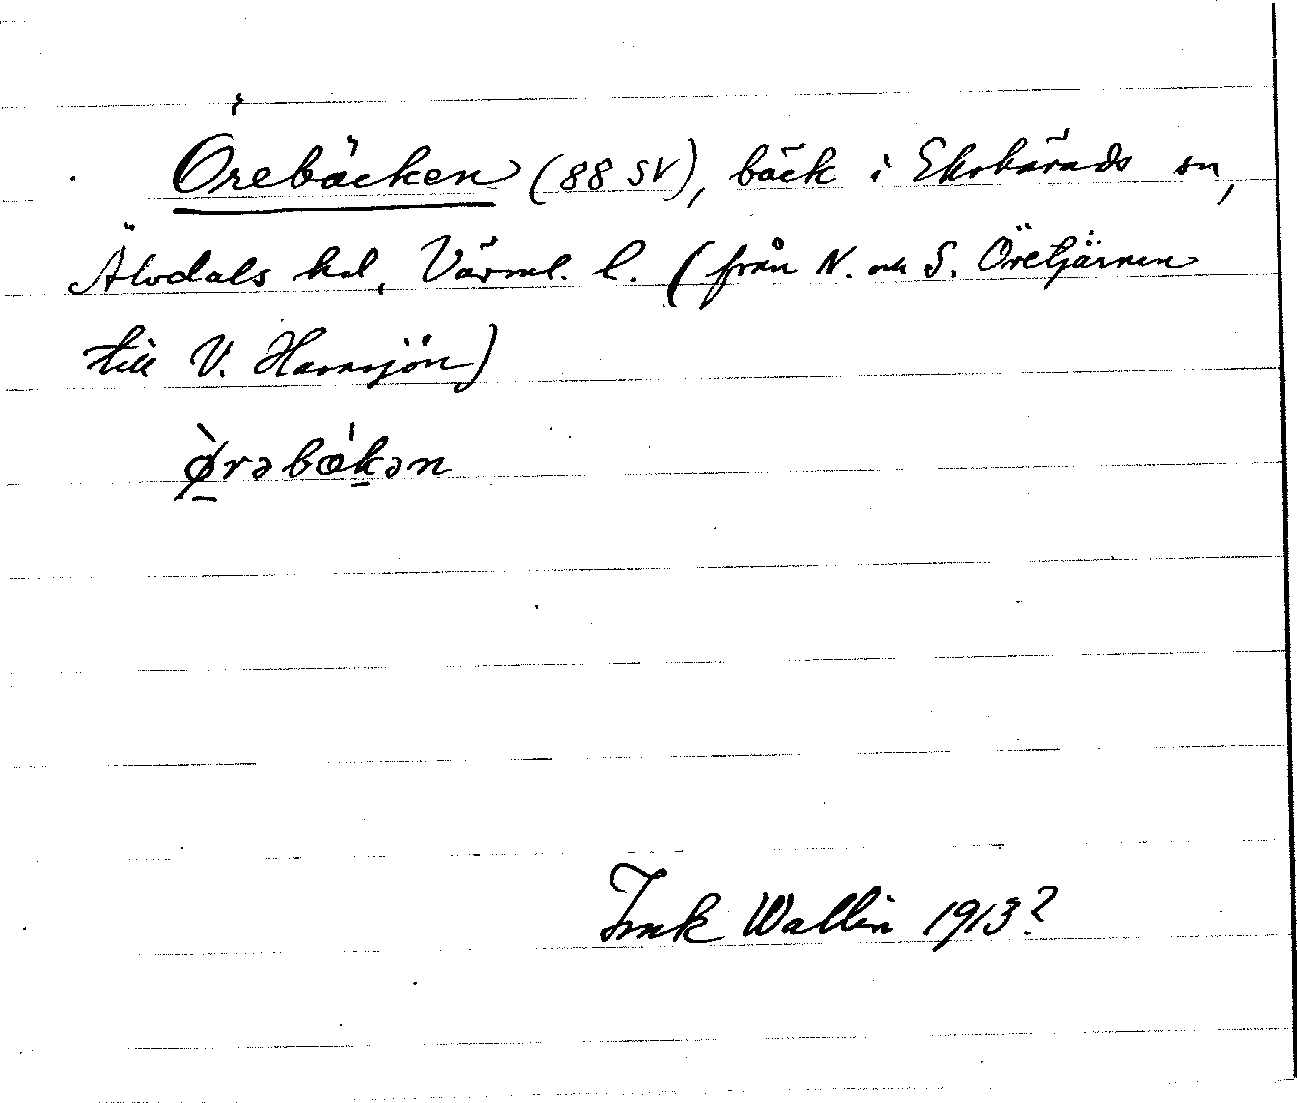 Örebäcken (88 SV), bäck i Ekshärads sn,
Älvdals hd, Värml. l. (från N. och S. Öretjärnen
till V. Havssjön)
ø̀rəbækən
Wallin 1913?